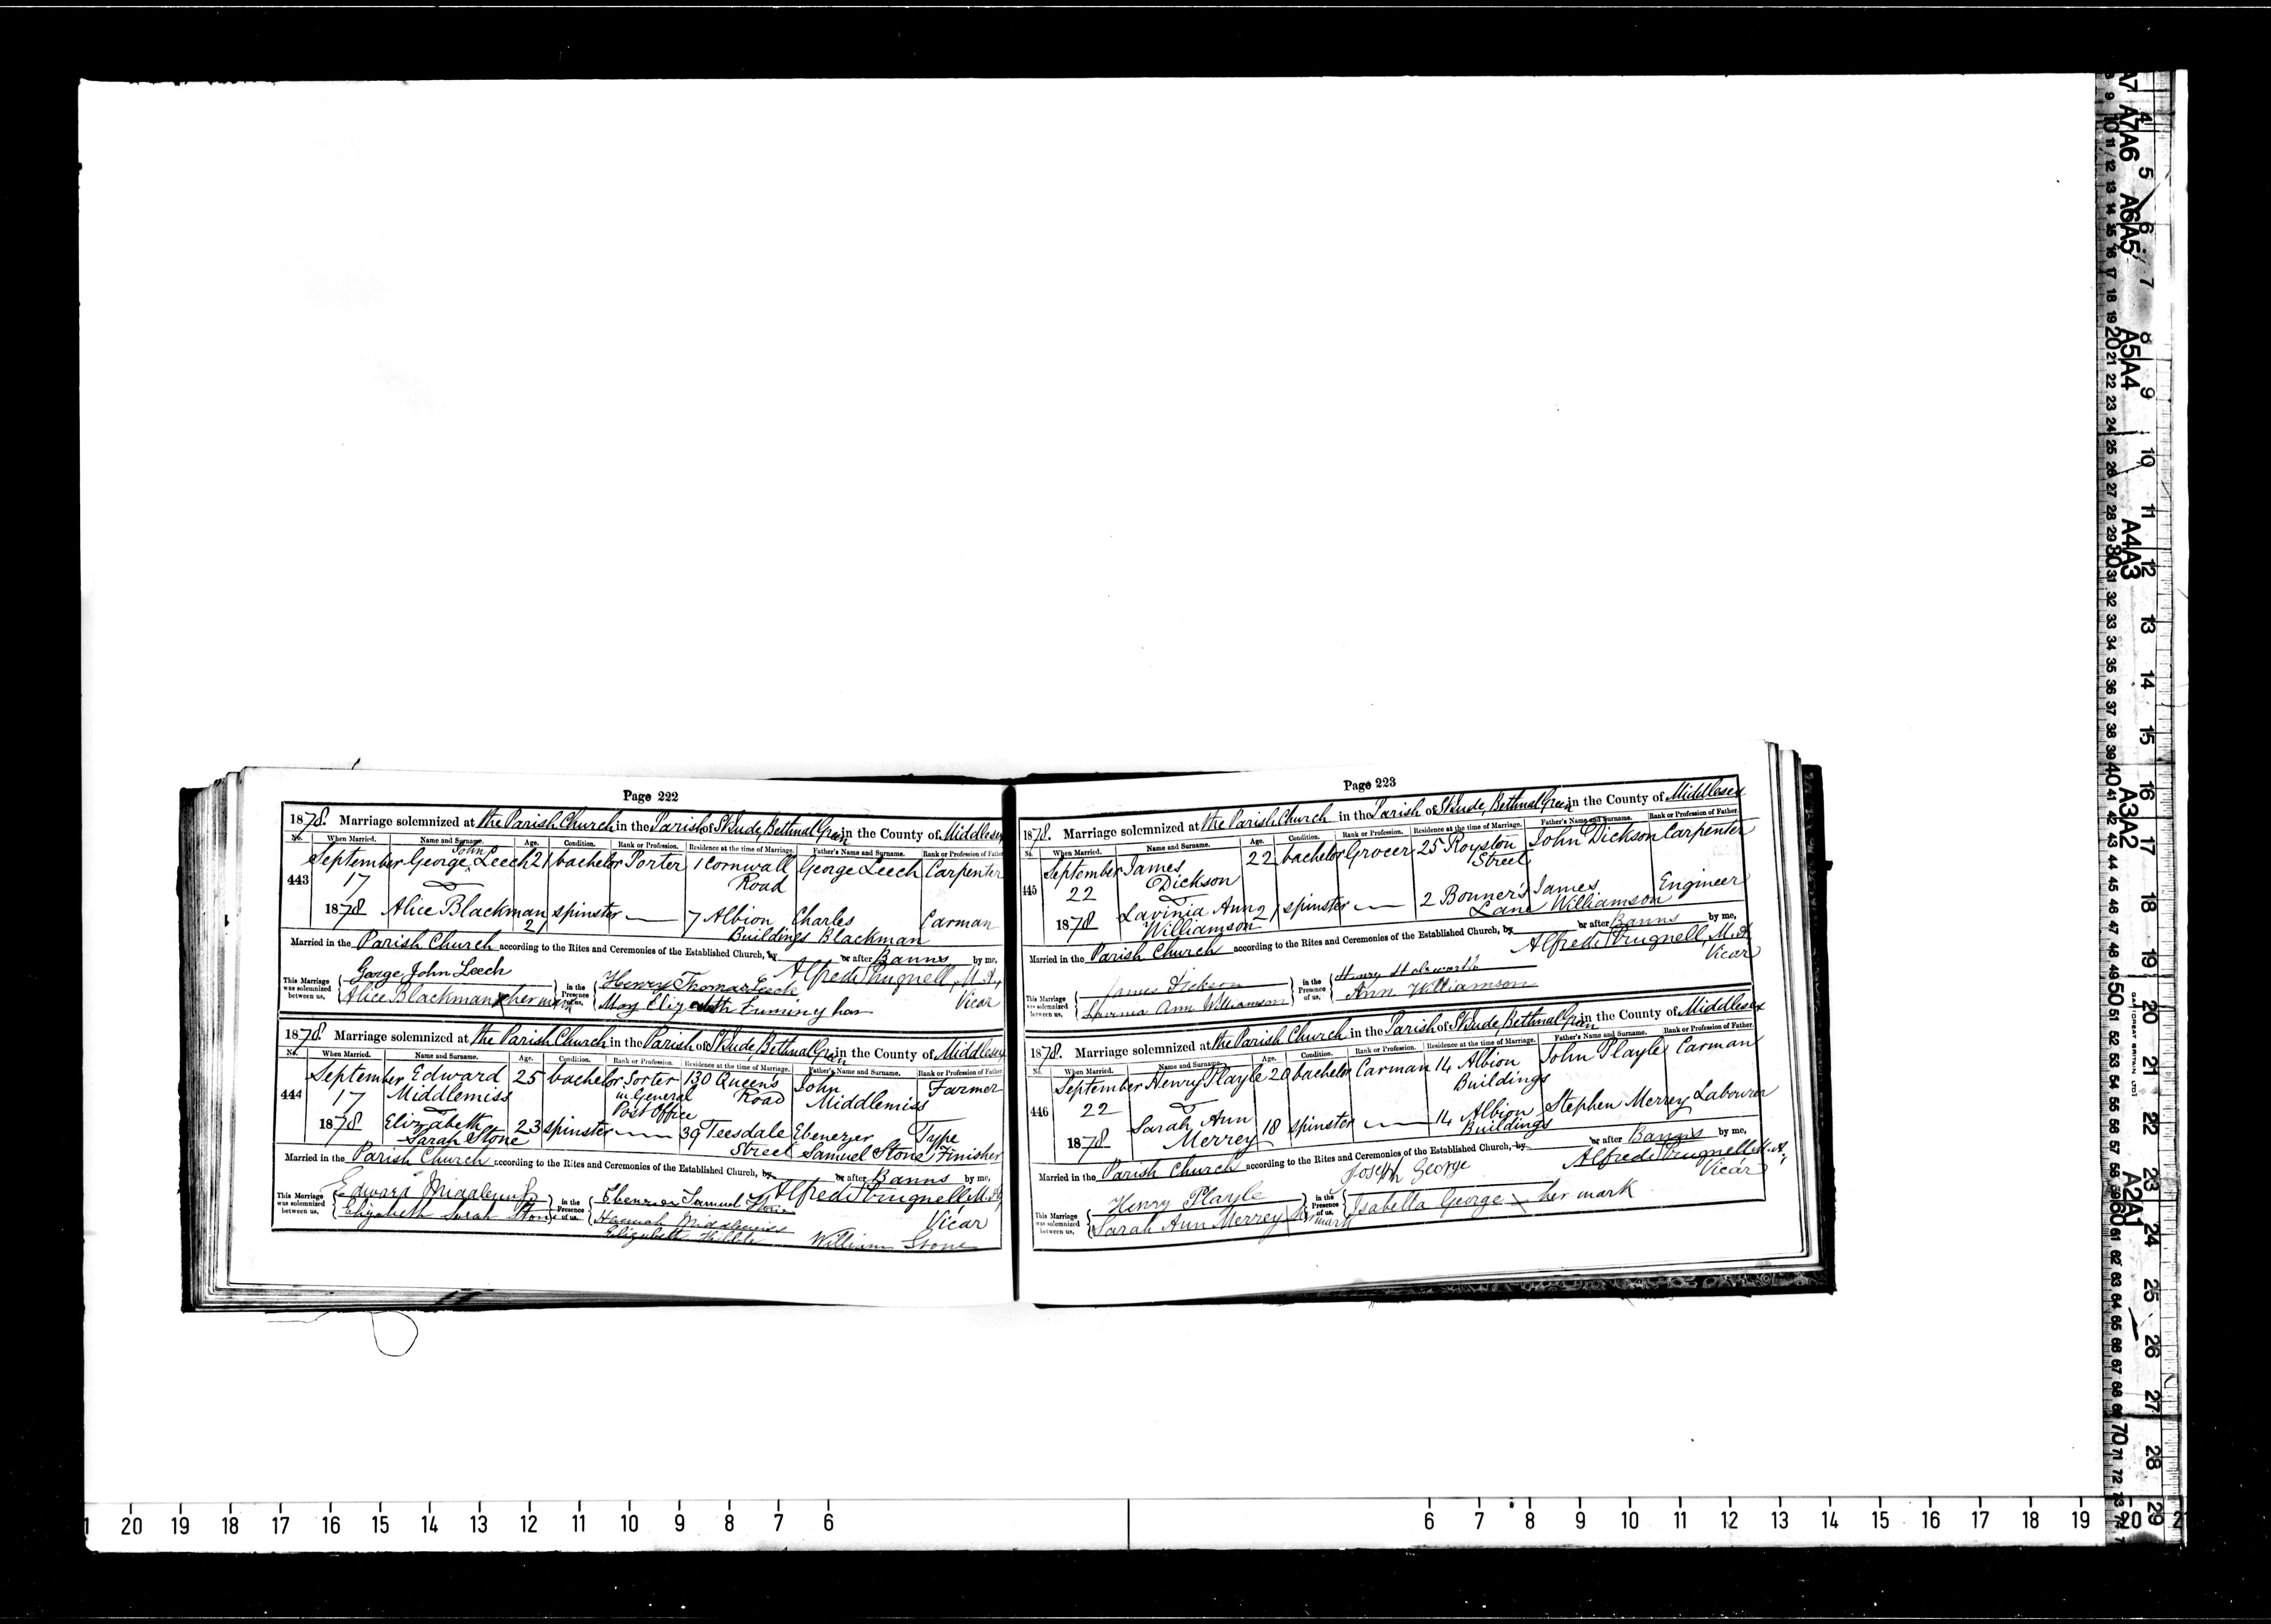 Page 222
1878. Marriage solemnized at the Parish Church in the Parish of St Jude, Bethnal Green in the County of Middlesex
No. When Married. Name and Surname. Age. Condition. Rank or Profession. Residence at the time of Marriage. Father's Name and Surname. Rank or Profession of Father
443 September 17 1878 George John Leech 21 bachelor Porter 1 Cornwall Road George Leech Carpenter
Alice Blackman 21 spinster — 7 Albion Buildings Charles Blackman Carman
Married in the Parish Church according to the Rites and Ceremonies of the Established Church, by or after Banns by me,
Alfred Trugnell, M.A., Vicar
This Marriage was solemnized between us, George John Leech
Alice Blackman x her mark
in the Presence of us, Henry Thomas Leech
Mary Elizabeth
1878. Marriage solemnized at the Parish Church in the Parish of St Jude, Bethnal Green in the County of Middlesex
No. When Married. Name and Surname. Age. Condition. Rank or Profession. Residence at the time of Marriage. Father's Name and Surname. Rank or Profession of Father
444 September 17 1878 Edward Middlemiss 25 bachelor Sorter in General Post Office 130 Queen's Road John Middlemiss Farmer
Elizabeth Sarah Stone 23 spinster — 39 Teesdale Street Ebenezer Samuel Stone Type Finisher
Married in the Parish Church according to the Rites and Ceremonies of the Established Church, by or after Banns by me,
Alfred Trugnell, M.A., Vicar
This Marriage was solemnized between us, Edward Middlemiss
Elizabeth Sarah Stone
in the Presence of us, Ebenezer Samuel Stone
Hannah Middlemiss
Elizabeth
William Stone
Page 223
1878. Marriage solemnized at the Parish Church in the Parish of St Jude, Bethnal Green in the County of Middlesex
No. When Married. Name and Surname. Age. Condition. Rank or Profession. Residence at the time of Marriage. Father's Name and Surname. Rank or Profession of Father.
445 September 22 1878 James Dickson 22 bachelor Grocer 25 Royston Street John Dickson Carpenter
Lavinia Ann Williamson 21 spinster — 2 Bonner's Lane James Williamson Engineer
Married in the Parish Church according to the Rites and Ceremonies of the Established Church, by or after Banns by me,
Alfred Trugnell, M.A. Vicar
This Marriage was solemnized between us, James Dickson
Lavinia Ann Williamson
in the Presence of us, Henry
Ann Williamson
1878. Marriage solemnized at the Parish Church in the Parish of St Jude, Bethnal Green in the County of Middlesex
No. When Married. Name and Surname. Age. Condition. Rank or Profession. Residence at the time of Marriage. Father's Name and Surname. Rank or Profession of Father.
446 September 22 1878 Henry Playle 20 bachelor Carman 14 Albion Buildings John Playle Carman
Sarah Ann Merrey 18 spinster — 14 Albion Buildings Stephen Merrey Labourer
Married in the Parish Church according to the Rites and Ceremonies of the Established Church, by or after Banns by me,
Alfred Trugnell M.A., Vicar
This Marriage was solemnized between us, Henry Playle
Sarah Ann Merrey x her mark
in the Presence of us, Joseph George
Isabella George x her mark
20 19 18 17 16 15 14 13 12 11 10 9 8 7 6
6 7 8 9 10 11 12 13 14 15 16 17 18 19 20
A7 A7A6 A6A5 A5A4 A4A3 A3A2 A2A1
4 5 6 7 8 9 10 11 12 13 14 15 16 17 18 19 20 21 22 23 24 25 26 27 28 29